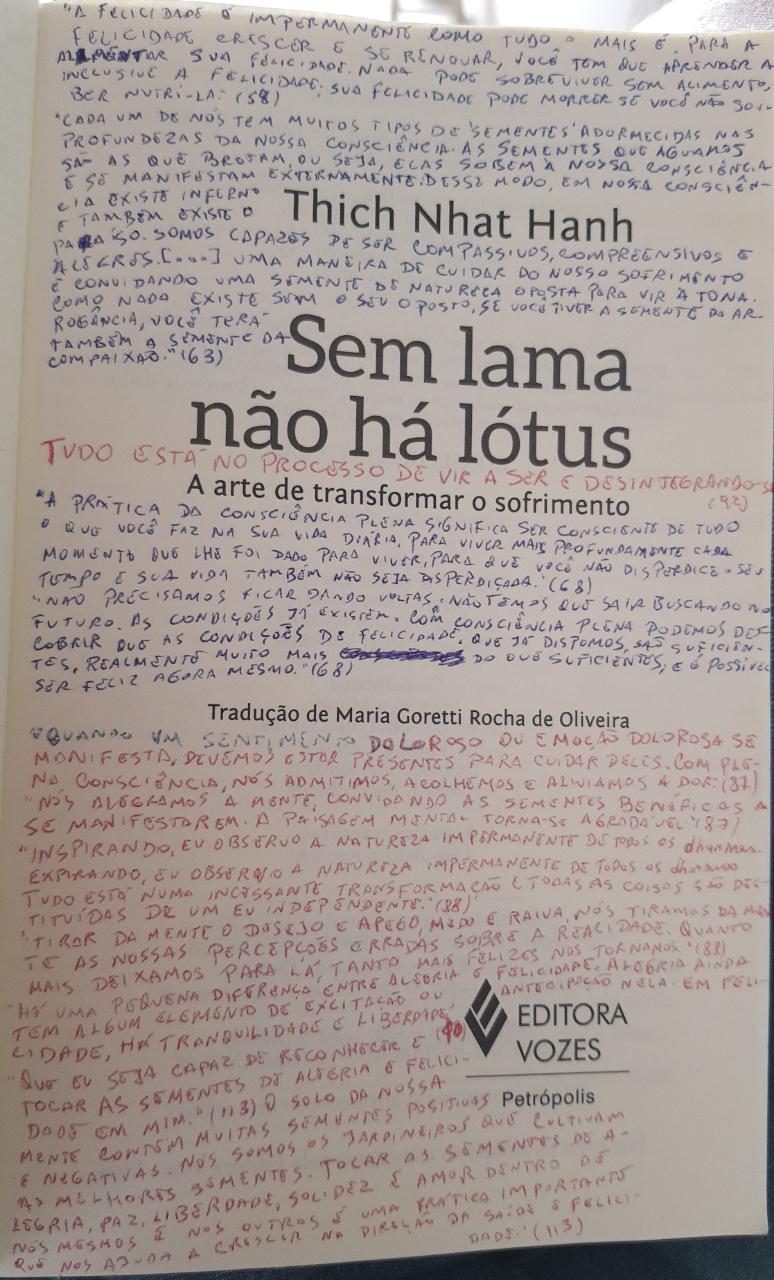 "A FELICIDADE É IMPERMANENTE COMO TUDO O MAIS É. PARA A
FELICIDADE CRESCER E SE RENOVAR, VOCÊ TEM QUE APRENDER A
ALIMENTAR SUA FELICIDADE. NADA PODE SOBREVIVER SEM ALIMENTO,
INCLUSIVE A FELICIDADE; SUA FELICIDADE PODE MORRER SE VOCÊ NÃO SOU-
BER NUTRI-LA." (58)
"CADA UM DE NÓS TEM MUITOS TIPOS DE 'SEMENTES' ADORMECIDAS NAS
PROFUNDEZAS DA NOSSA CONSCIÊNCIA. AS SEMENTES QUE AGUAMOS
SÃO AS QUE BROTAM, OU SEJA, ELAS SOBEM À NOSSA CONSCIÊNCIA
E SE MANIFESTAM EXTERNAMENTE. DESSE MODO, EM NOSSA CONSCIÊN-
CIA EXISTE INFERNO
E TAMBÉM EXISTE O
Thich Nhat Hanh
PARAÍSO. SOMOS CAPAZES DE SER COMPASSIVOS, COMPREENSIVOS E
ALEGRES. [...] UMA MANEIRA DE CUIDAR DO NOSSO SOFRIMENTO
É CONVIDANDO UMA SEMENTE DE NATUREZA OPOSTA PARA VIR À TONA.
COMO NADA EXISTE SEM O SEU OPOSTO, SE VOCÊ TIVER A SEMENTE DA AR-
ROGÂNCIA, VOCÊ TERÁ
TAMBÉM A SEMENTE DA
COMPAIXÃO." (63)
Sem lama
não há lótus
TUDO ESTÁ NO PROCESSO DE VIR A SER E DESINTEGRANDO-SE
(92)
A arte de transformar o sofrimento
"A PRÁTICA DA CONSCIÊNCIA PLENA SIGNIFICA SER CONSCIENTE DE TUDO
O QUE VOCÊ FAZ NA SUA VIDA DIÁRIA, PARA VIVER MAIS PROFUNDAMENTE CADA
MOMENTO QUE LHE FOI DADO PARA VIVER, PARA QUE VOCÊ NÃO DISPERDICE O SEU
TEMPO E SUA VIDA TAMBÉM NÃO SEJA DISPERDIÇADA." (68)
"NÃO PRECISAMOS FICAR DANDO VOLTAS. NÃO TEMOS QUE SAIR BUSCANDO NO
FUTURO. AS CONDIÇÕES JÁ EXISTEM. COM CONSCIÊNCIA PLENA PODEMOS DES-
COBRIR QUE AS CONDIÇÕES DE FELICIDADE, QUE JÁ DISPOMOS, SÃO SUFICIEN-
TES, REALMENTE MUITO MAIS DO QUE SUFICIENTES; E É POSSÍVEL
SER FELIZ AGORA MESMO." (68)
Tradução de Maria Goretti Rocha de Oliveira
"QUANDO UM SENTIMENTO DOLOROSO OU EMOÇÃO DOLOROSA SE
MANIFESTA, DEVEMOS ESTAR PRESENTES PARA CUIDAR DELES. COM PLE-
NA CONSCIÊNCIA, NÓS ADMITIMOS, ACOLHEMOS E ALIVIAMOS A DOR." (87)
"NÓS ALEGRAMOS A MENTE, CONVIDANDO AS SEMENTES BENÉFICAS A
SE MANIFESTAREM. A PAISAGEM MENTAL TORNA-SE AGRADÁVEL" (87)
"INSPIRANDO, EU OBSERVO A NATUREZA IMPERMANENTE DE TODOS OS dharmas.
EXPIRANDO, EU OBSERVO A NATUREZA IMPERMANENTE DE TODOS OS dharmas.
TUDO ESTÁ NUMA INCESSANTE TRANSFORMAÇÃO E TODAS AS COISAS SÃO DES-
TITUÍDAS DE UM EU INDEPENDENTE." (88)
"TIRAR DA MENTE O DESEJO E APEGO, MEDO E RAIVA, NÓS TIRAMOS DA MEN
TE AS NOSSAS PERCEPÇÕES ERRADAS SOBRE A REALIDADE. QUANTO
MAIS DEIXAMOS PARA LÁ, TANTO MAIS FELIZES NOS TORNAMOS." (88)
"HÁ UMA PEQUENA DIFERENÇA ENTRE ALEGRIA E FELICIDADE. ALEGRIA AINDA
TEM ALGUM ELEMENTO DE EXCITAÇÃO OU ANTECIPAÇÃO NELA. EM FELI-
CIDADE, HÁ TRANQUILIDADE E LIBERDADE." (90)
EDITORA
VOZES
"QUE EU SEJA CAPAZ DE RECONHECER E
TOCAR AS SEMENTES DE ALEGRIA E FELICI-
DADE EM MIM." (113) O SOLO DA NOSSA
Petrópolis
MENTE CONTÉM MUITAS SEMENTES POSITIVAS
E NEGATIVAS. NÓS SOMOS OS JARDINEIROS QUE CULTIVAM
AS MELHORES SEMENTES. TOCAR AS SEMENTES DE A-
LEGRIA, PAZ, LIBERDADE, SOLIDEZ E AMOR DENTRO DE
NÓS MESMOS E NOS OUTROS É UMA PRÁTICA IMPORTANTE
QUE NOS AJUDA A CRESCER NA DIREÇÃO DA SAÚDE E FELICI-
DADE." (113)